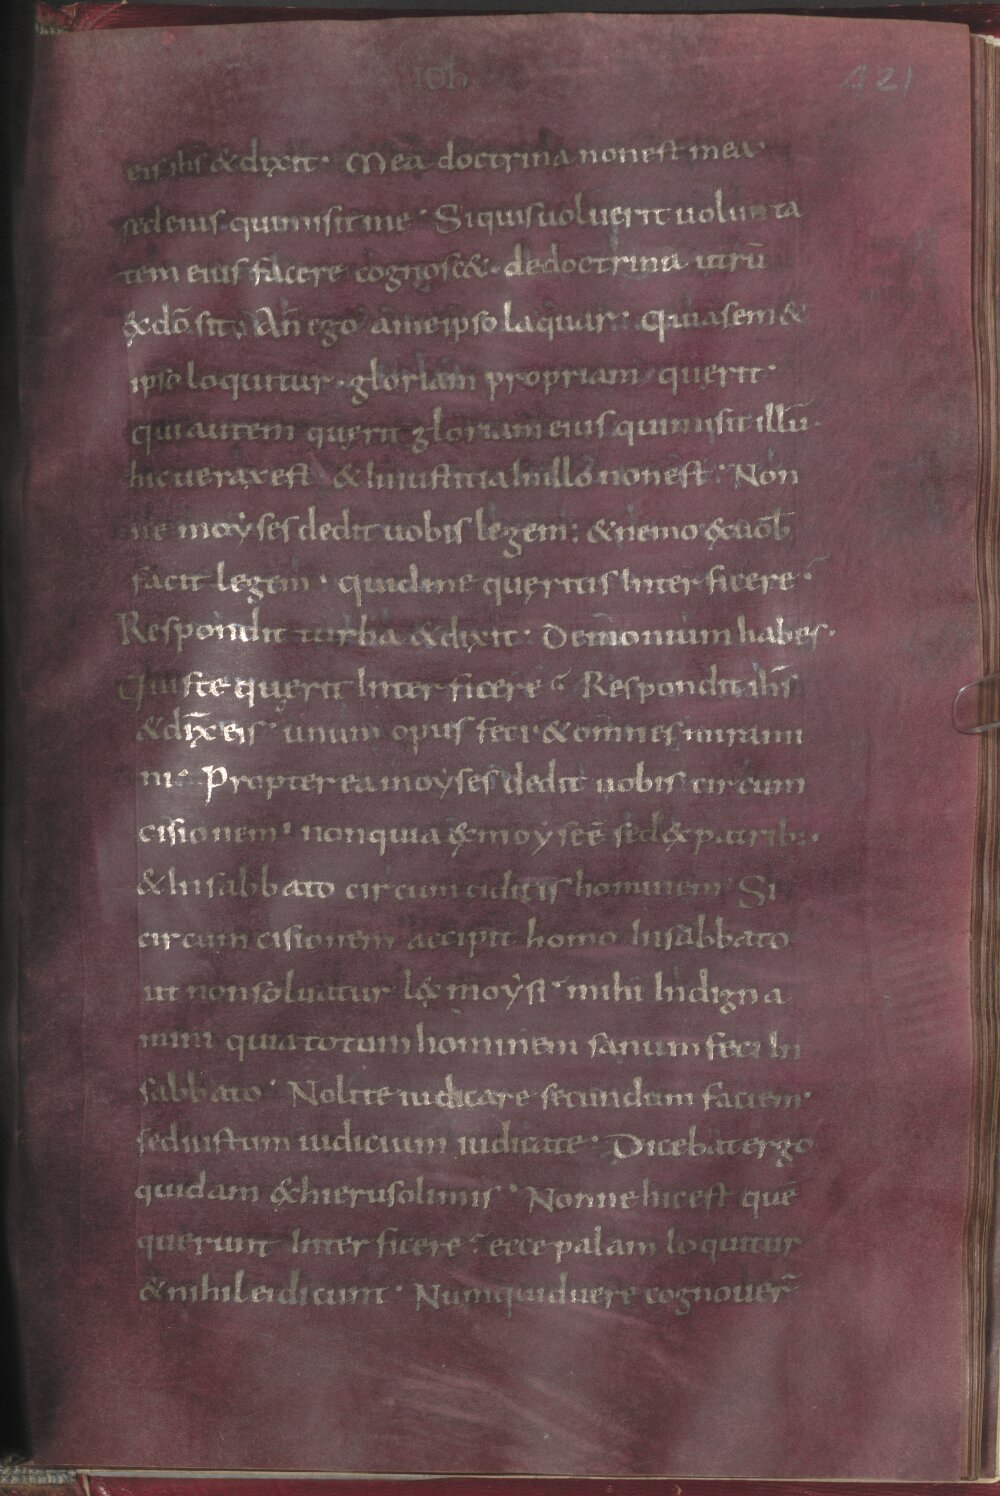 ioh
121
eis ihs & dixit · Mea doctrina non est mea ·
sed eius qui misit me · Si quis uoluerit uolunta
tem eius facere cognosc& · de doctrina utrū
ex dō sit, An ego a me ipso loquar · Qui a sem&
ipso loquitur · gloriam propriam querit ·
qui autem querit gloriam eius qui misit illū ·
hic uerax est & iniustitia in illo non est · Non
ne moyses dedit uobis legem : & nemo ex uob̄
facit legem · quid me queritis interficere ·
Respondit turba & dixit · Demonium habes ·
Quis te querit interficere Respondit ihs
& dix̄ eis · unum opus feci & omnes mirami
ni · Propterea moyses dedit uobis circum
cisionem · non quia ex moyse ē sed ex patrib; ·
& in sabbato circumciditis hominem Si
circumcisionem accipit homo in sabbato
ut non soluatur lex moysi · mihi indigna
mini quia totum hominem sanum feci in
sabbato · Nolite iudicare secundum faciem ·
sed iustum iudicium iudicate · Dicebat ergo
quidam ex hierusolimis · Nonne hic est quē
querunt interficere ecce palam loquitur
& nihil ei dicunt · Numquid uere cognouer̄